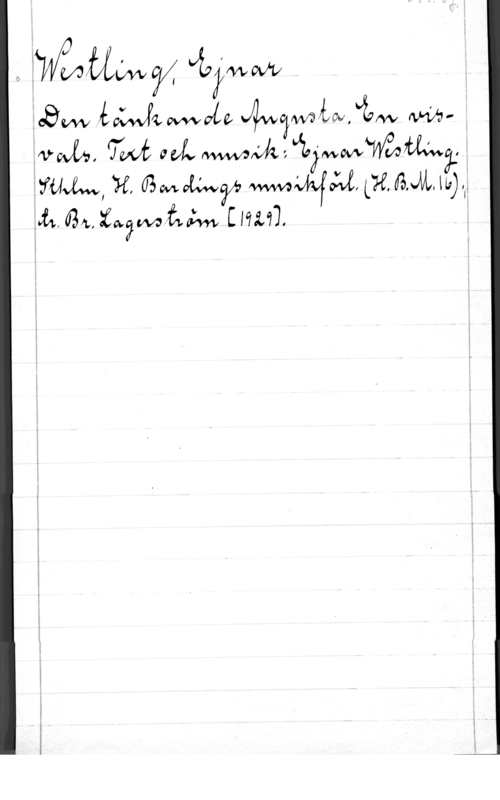 Westling, Ejnar
Den tänkande Augusta. En vis-
vals. Text och musik: Ejnar Westling.
Sthlm, H. Bardings musikförl. (H.B.M. 16),
tr. Br. Lagerström [1929].